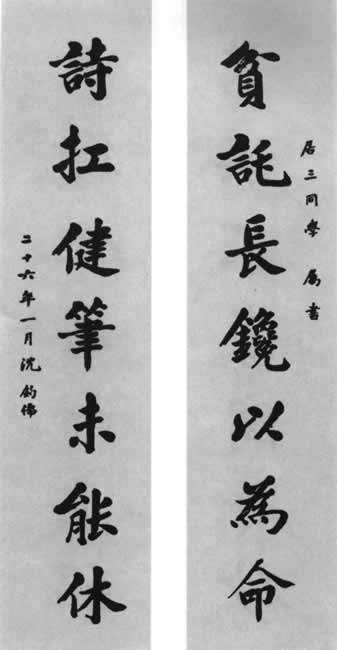 居三同學 屬書
貧託長鑱以為命
詩扛健筆未能休
二十六年一月沈鈞儒